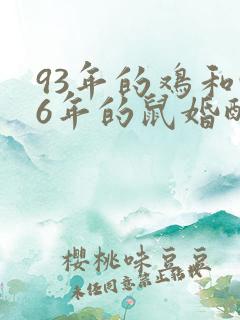 93年的鸡和
6年的鼠婚
樱桃味豆豆
未经同意禁止转载